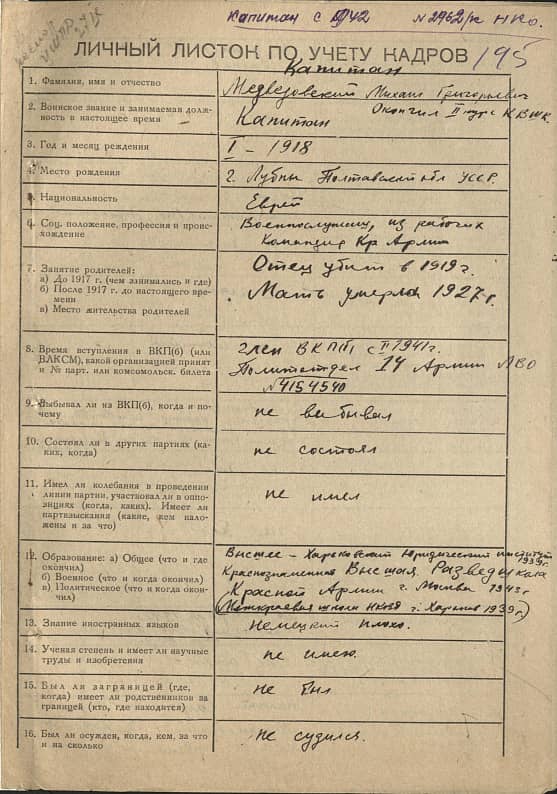 Капитан с 42 N 2962/к НКО.
ЛИЧНЫЙ ЛИСТОК ПО УЧЕТУ КАДРОВ 195
Капитан
1. Фамилия, имя и отчество
Медведовский Михаил Григорьевич
2. Воинское звание и занимаемая долж-
ность в настоящее время
Капитан
Окончил II курс КВШК
3. Год и месяц рождения
I – 1918
4. Место рождения
г. Лубны Полтавской обл УССР.
5. Национальность
Еврей
6. Соц. положение, профессия и проис-
хождение
Военнослужащ, из рабочих
Командир Кр Армии
7. Занятие родителей:
а) До 1917 г. (чем занимались и где)
б) После 1917 г. до настоящего вре-
мени
в) Место жительства родителей
Отец убит в 1919 г.
Мать умерла 1927 г.
8. Время вступления в ВКП(б) (или
ВЛКСМ), какой организацией принят
и № парт. или комсомольск. билета
член ВКП(б) с II 1941 г.
Политотдел 14 Армии ЛВО
N 4154540
9. Выбывал ли из ВКП(б), когда и по-
чему
не выбывал
10. Состоял ли в других партиях (ка-
ких, когда)
не состоял
11. Имел ли колебания в проведении
линии партии, участвовал ли в оппо-
зициях (когда, каких). Имеет ли
партвзыскания (какие, кем нало-
жены и за что)
не имел
12. Образование: а) Общее (что и где
окончил)
б) Военное (что и когда окончил)
в) Политическое (что и когда окон-
чил)
Высшее – Харьковский Юридический институт
1939 г.
Краснознаменная Высшая Развед школа
Красной Армии г. Москва 1943 г
(Межкраевая школа НКВД г. Харьков 1939 г.)
13. Знание иностранных языков
Немецкий плохо.
14. Ученая степень и имеет ли научные
труды и изобретения
не имею.
15. Был ли заграницей (где,
когда) имеет ли родственников за
границей (кто, где находится)
не был
16. Был ли осужден, когда, кем, за что
и на сколько
не судился.